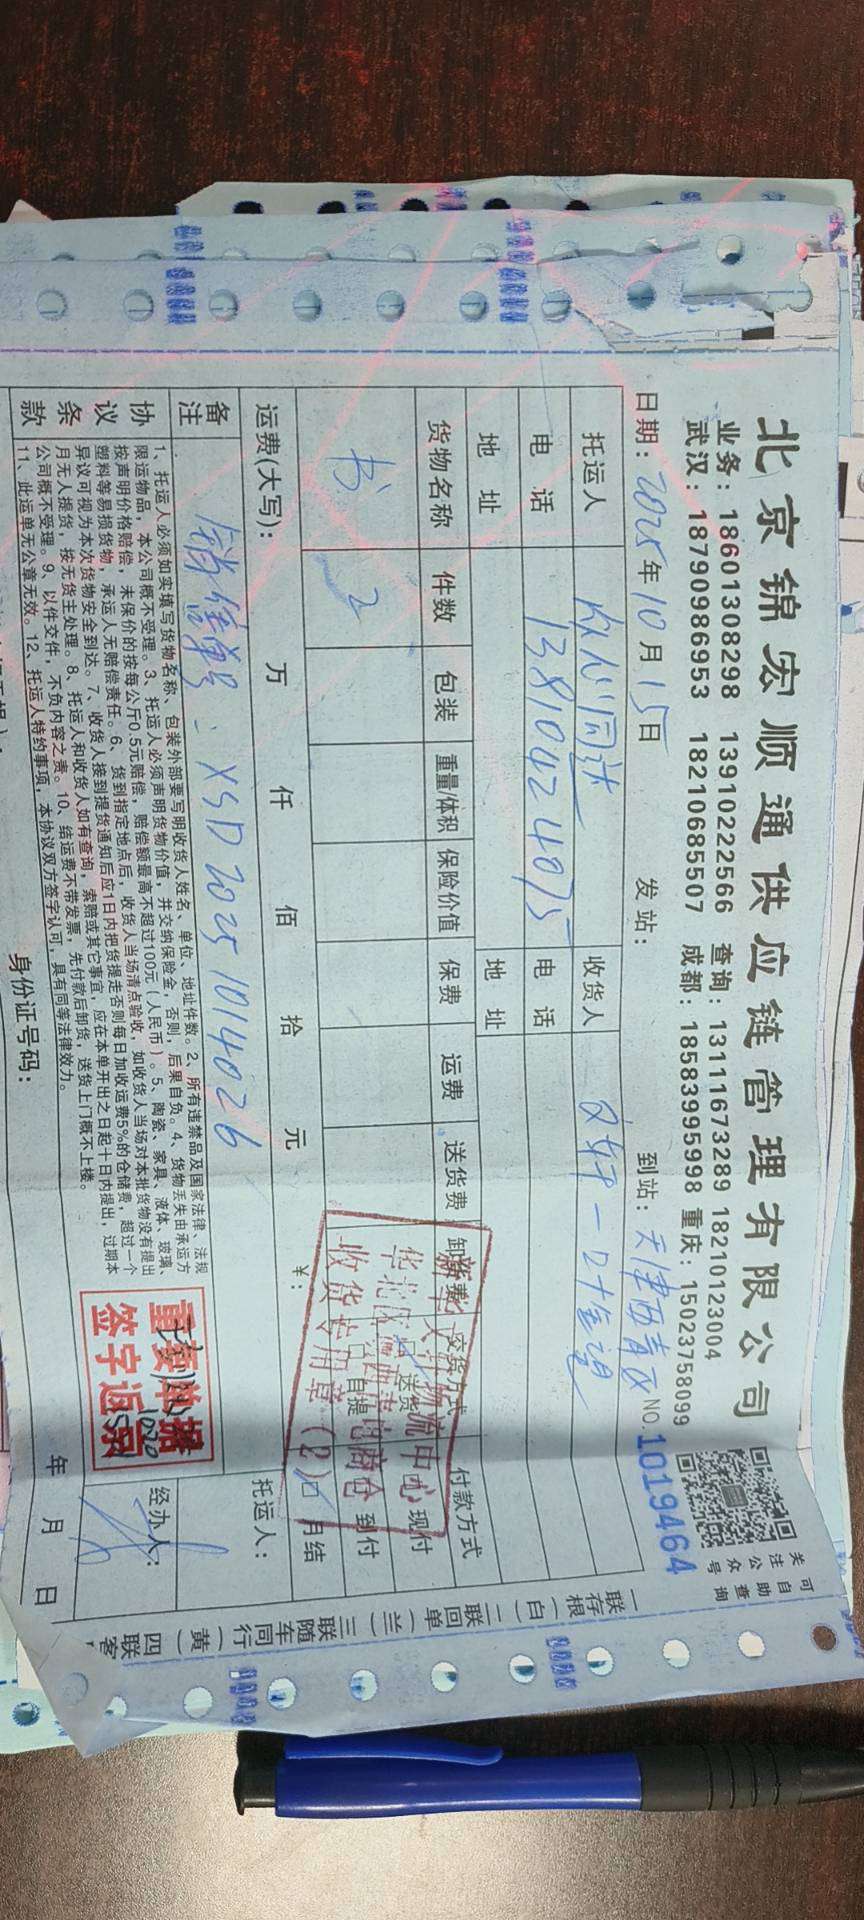 北京锦宏顺通供应链管理有限公司
业务：18601308298 13910222566 查询：13111673289 18210123004
武汉：18790986953 18210685507 成都：18583995998 重庆：15023758099
可自助查询
关注公众号
日期：2025年10月15日 发站： 到站：天津西青区 NO.1019464
托运人 众心同达 收货人
电话 13810424075 电话
地址 地址
货物名称 件数 包装 重量/体积 保险价值 保费 运费 送货费 卸费 交货方式 付款方式
书 2 送货 自提 现付 到付 月结
运费(大写)： 万 仟 佰 拾 元 ¥：
备注 销售单：XSD20251014026
托运人：
经办人：
新华文轩物流中心
收货专用章（2）
重要单据
签字返回
协议条款
1、托运人必须如实填写货物名称、包装外部要写明收货人姓名、单位、地址件数。2、所有违禁品及国家法律、法规
限运物品，本公司概不受理。3、托运人必须声明货物价值，并交纳保险金，否则，后果自负。4、货物丢失由承运方
按声明价格赔偿，未保价的按每公斤0.5元赔偿，赔偿额最高不超过100元（人民币）。5、陶瓷、家具、液体、玻璃、
塑料等易损货物，承运人无赔偿责任。6、货到指定地点后，收货人当场清点验收，如收货人当场对本批货物没有提出
异议可视为本次货物安全到达。7、收货人接到提货通知后应1日内把货提走否则每日加收运费5%的仓储费，超过一个
月无人提货，按无货主处理。8、托运人和收货人如有查询，索赔或其它事宜，应在本单开出之日起十日内提出，过期本
公司概不受理。9、以件交件，不负内容之责。10、结运费不带发票，先付款后卸货，送货上门概不上楼。
11、此运单无公章无效。12、托运人特约事项，本协议双方签字认可，具有同等法律效力。
身份证号码： 年 月 日
一联存根（白）二联回单（兰）三联随车同行（黄）四联客